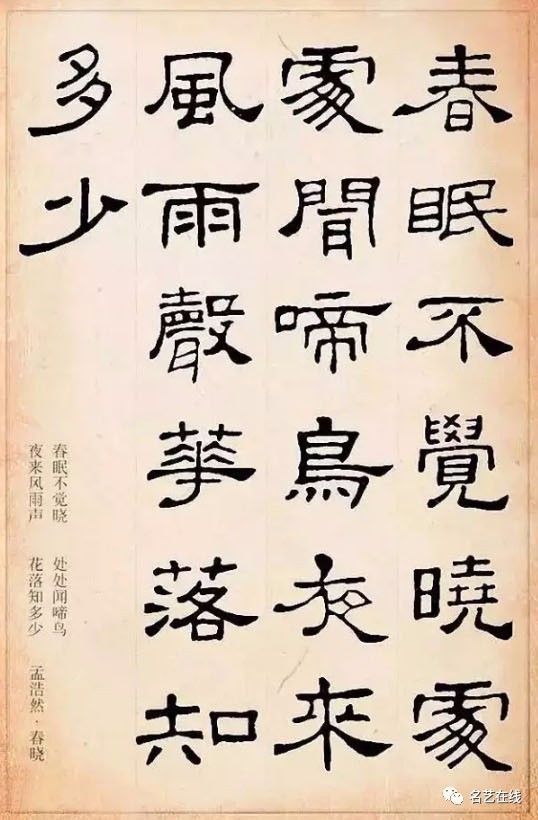 春眠不覺曉處
處聞啼鳥夜來
風雨聲華落知
多少
春眠不觉晓 处处闻啼鸟
夜来风雨声 花落知多少 孟浩然·春晓
名艺在线